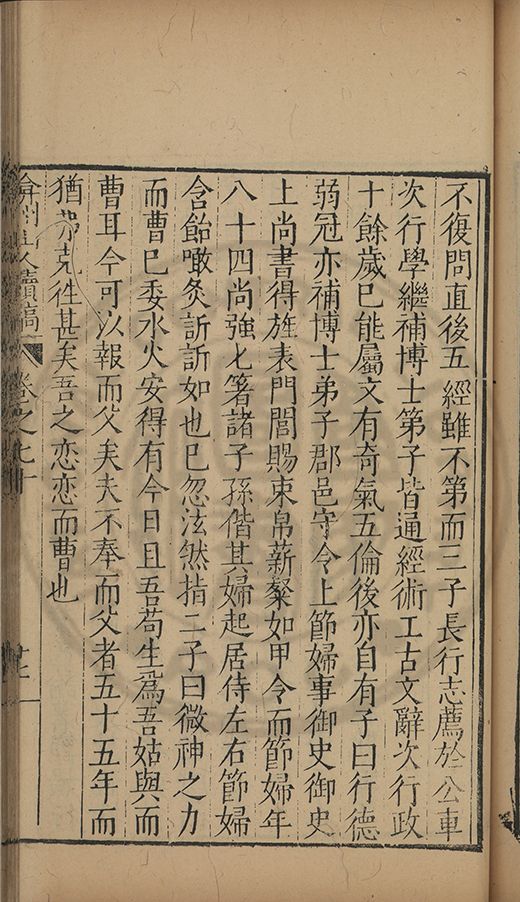 不復問直後五經雖不第而三子長行志薦於公車
次行學繼補博士第子皆通經術工古文辭次行政
十餘歲已能屬文有奇氣五倫後亦自有子曰行德
弱冠亦補博士弟子郡邑守令上節婦事御史御史
上尚書得旌表門閭賜束帛薪粲如甲令而節婦年
八十四尚強匕箸諸子孫偕其婦起居侍左右節婦
含飴噉炙訢訢如也巳忽泫然指二子曰微神之力
而曹巳委水火安得有今日且吾苟生為吾姑與而
曹耳今可以報而父矣夫不奉而父者五十五年而
猶弗克徃甚矣吾之恋恋而曹也
弇州山人續稿 卷之七十